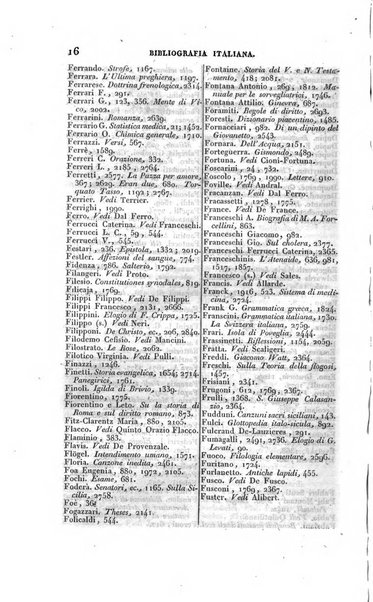 16
BIBLIOGRAFIA ITALIANA.
Ferrando. Strofe, 1167.
Ferrara. L'Ultima preghiera, 1197.
Ferrarese. Dottrina frenologica, 2181.
Ferrari F., 291.
Ferrari G., 123, 356. Mente di Vi-
co, 2018.
Ferrarini. Romanza, 2939.
Ferrario G. Statistica medica, 21; 1452.
Ferrario O. Chimica generale, 1710.
Ferrazzi. Versi, 567.
Ferrè, 1589.
Ferreri C. Orazione, 332.
Ferretti, 2677. La Pazza per amore,
367; 2619. Eran due, 680. Tor-
quato Tasso, 1192; 1193.
Ferrier. Vedi Terrier.
Ferrighi, 1990.
Ferro. Vedi Dal Ferro.
Ferrucci Caterina. Vedi Franceschi.
Ferrucci L. C., 59, 544.
Ferrucci M., 545.
Festari, 236. Epistola, 1332; 2019.
Festler. Affezioni del sangue, 774.
Fidenza, 786. Salterio, 1792.
Filangeri. Vedi Proto.
Filesio. Constitutiones synodales, 819.
Filicaja, 1769.
Filippi Filippo. Vedi De Filippi.
Filippi Francesco, 2131, 2666.
Filippini. Elogio di F. Crippa, 1547.
Filippo (s). Vedi Neri.
Filippone. Archivio, ec., 206, 2840.
Filodemo Cefisio. Vedi Mancini.
Filostato. Le Rose, 2002.
Filotico Virginio. Vedi Pulli.
Finazzi, 1246.
Finetti. Storia evangelica, 1652; 2714.
Panegirici, 1761.
Finoli. Igilda di Brivio, 1370.
Fiorentino, 1775.
Fiorentino e Leto. Su la storia di
Roma e sul diritto romano, 873.
Fitz-Clarentz Maria, 810.
Flacco. Vedi Quinto Orazio Flacco.
Flaminio, 383.
Flavis. Vedi De Provenzale.
Flögel. Intendimento umano, 1571.
Floria. Canzone inedita, 2461.
Foa Eugenia, 880, 1972, 2532.
Fochi. Esame, 681.
Foderà. Senatori, ec., 1165. Sulla Si-
cilia, 2758.
Foè, 36.
Fogazzari. Theses, 2141.
Folicaldi, 544.
Fontaine. Storia del V. e N. Testa-
mento, 418; 2080.
Fontana Antonio, 2691, 2692. Ma-
niale per le sorvegliatrici, 1746.
Fontana Attilio. Ginevra, 687.
Foramiti. Regole di diritto, 1303.
Foresti. Dizionario piacentino, 1485.
Fornaciari, 982. Di un dipinto del
Giovanetto, 2543.
Fornara. Dell'Acqua, 2151.
Fornasini. Gelsi, 2489.
Fortuna. Vedi Cioni-Fortuna.
Foscarini, 24, 752.
Foscolo, 1769, 1990. Lettere, 2910.
Foville. Vedi Andral.
Fracanzan. Vedi De Fracanzan.
Fracassetti, 2708, 1775.
France. Vedi De France.
Franceschi A. Biografia di M. A. For-
cellini, 863.
Franceschi Giacomo, 982.
Franceschi Gio. Sul cholera, 2377.
Franceschi Ferrucci Caterina, 2365.
Franceschinis. L'Atenaide, 636, 981,
1517, 1857.
Francesco (s). Vedi Sales.
Francis. Vedi Allarde.
Franck, 1916, 523. Malattie cutanee,
2250.
Frank G. Grammatica greca, 1824.
Franscini. Grammatica italiana, 1730.
La Svizzera italiana, 2469.
Frassinetti. Riflessioni, 2685.
Fratta. Vedi Scaligeri.
Freddi. Giacomo Watt, 2560.
Freschi. Sulla Teoria della flogosi,
1451.
Frisiani, 2341.
Frugoni, 612, 1769, 2367.
Frulli, 1368. S. Giuseppe Calasan-
zio, 2304.
Fudduni. Canzuni sacri siciliani, 143.
Fulci. Glottopedia italo-sicula, 892.
Fulerand De-Lauzieres, 291.
Fumagalli, 291, 2367. Elogio di G.
Levati, 90.
Fuoco. Filologia elementare, 2596.
Furitano, 1762.
Furlanetto. Antiche lapidi, 455.
Fusco. Vedi De Fusco.
Fusconi, 1769, 2367.
Fuster. Vedi Alibert.